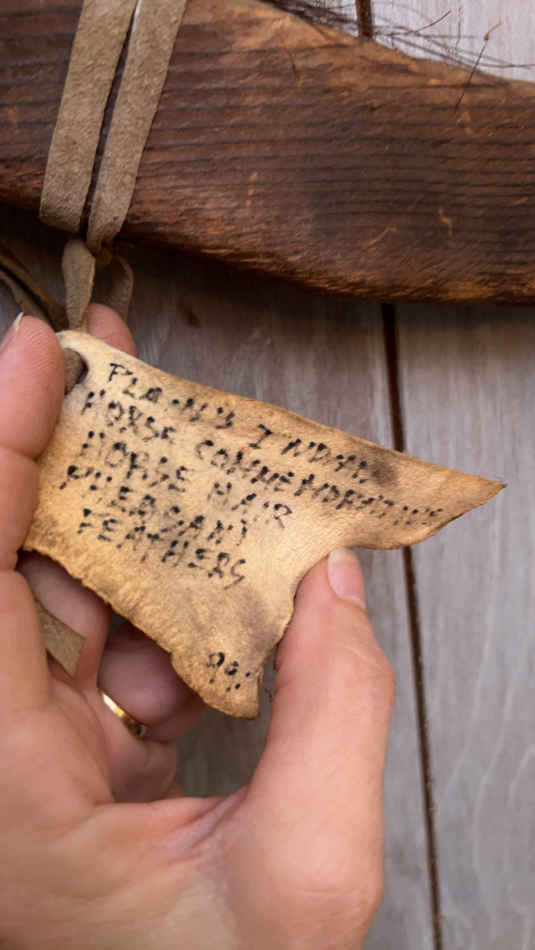 PLAINS INDIAN
HORSE COMMEMORATIVE
HORSE HAIR
PHEASANT
FEATHERS